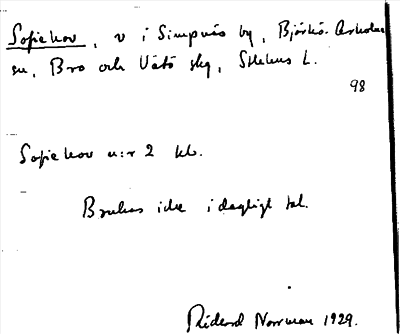 Sofiehov, v i Simpnäs by, Björkö-Arholma
sn, Bro och Vätö skg, Sthlms L.
98
Sofiehov n:r 2 kb.
Brukas icke i dagligt tal.
Rickard Norrman 1929.